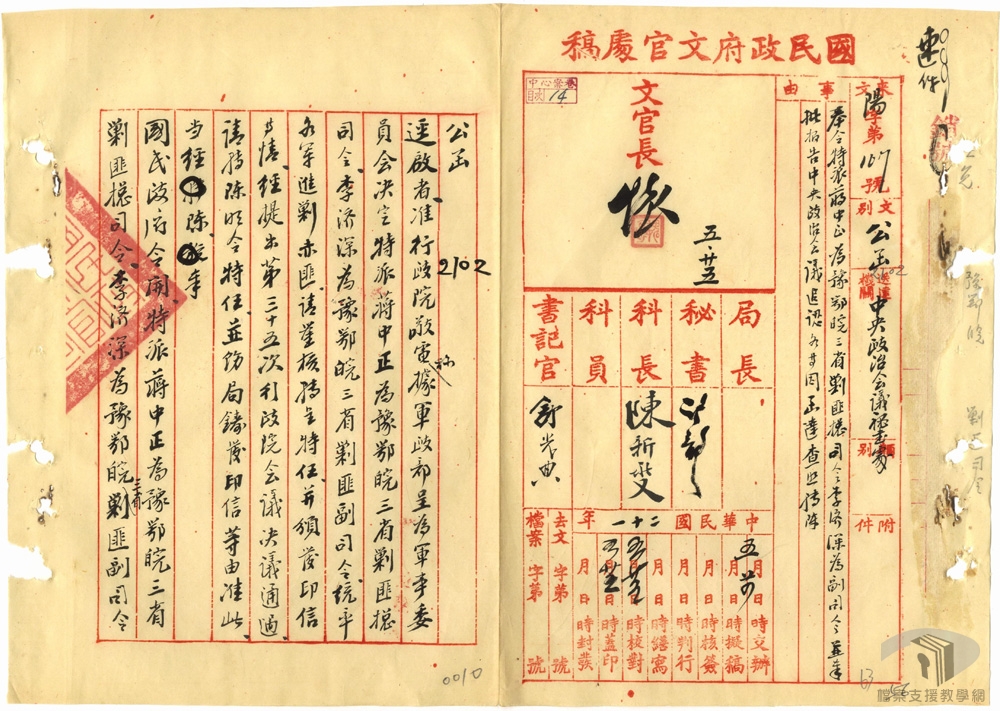 國民政府文官處稿
速件
來文
陽字第1617號
事由
奉令特派蔣中正為豫鄂皖三省剿匪總司令李濟深為副司令並奉
批報告中央政治會議追認各等因函達查照轉陳
文別
公函
送達機關
中央政治會議秘書處
類別
附件
中心案卷
目次 14
文官長
五、廿五
局長
秘書
科長
陳新燮
科員
書記官
舒光典
中華民國二十一年
月 日 時交辦
月 日 時擬稿
月 日 時核簽
月 日 時判行
月 日 時繕寫
月 日 時校對
月 日 時蓋印
月 日 時封發
去文 字第 號
檔案 字第 號
公函
2102
逕啟者准行政院敬電稱據軍政部呈為軍事委
員会決定特派蔣中正為豫鄂皖三省剿匪總
司令、李济深為豫鄂皖三省剿匪副司令、統率
各軍進剿赤匪、請鑒核轉呈特任、并頒發印信
等情、經提出第三十五次行政院会議決議通過、
请转陈明令特任、並飭局鑄發印信等由准此、
当經陈奉
國民政府令開、特派蔣中正為豫鄂皖三省
剿匪總司令、李济深為豫鄂皖三省剿匪副司令
0010
63
檔案支援教學網